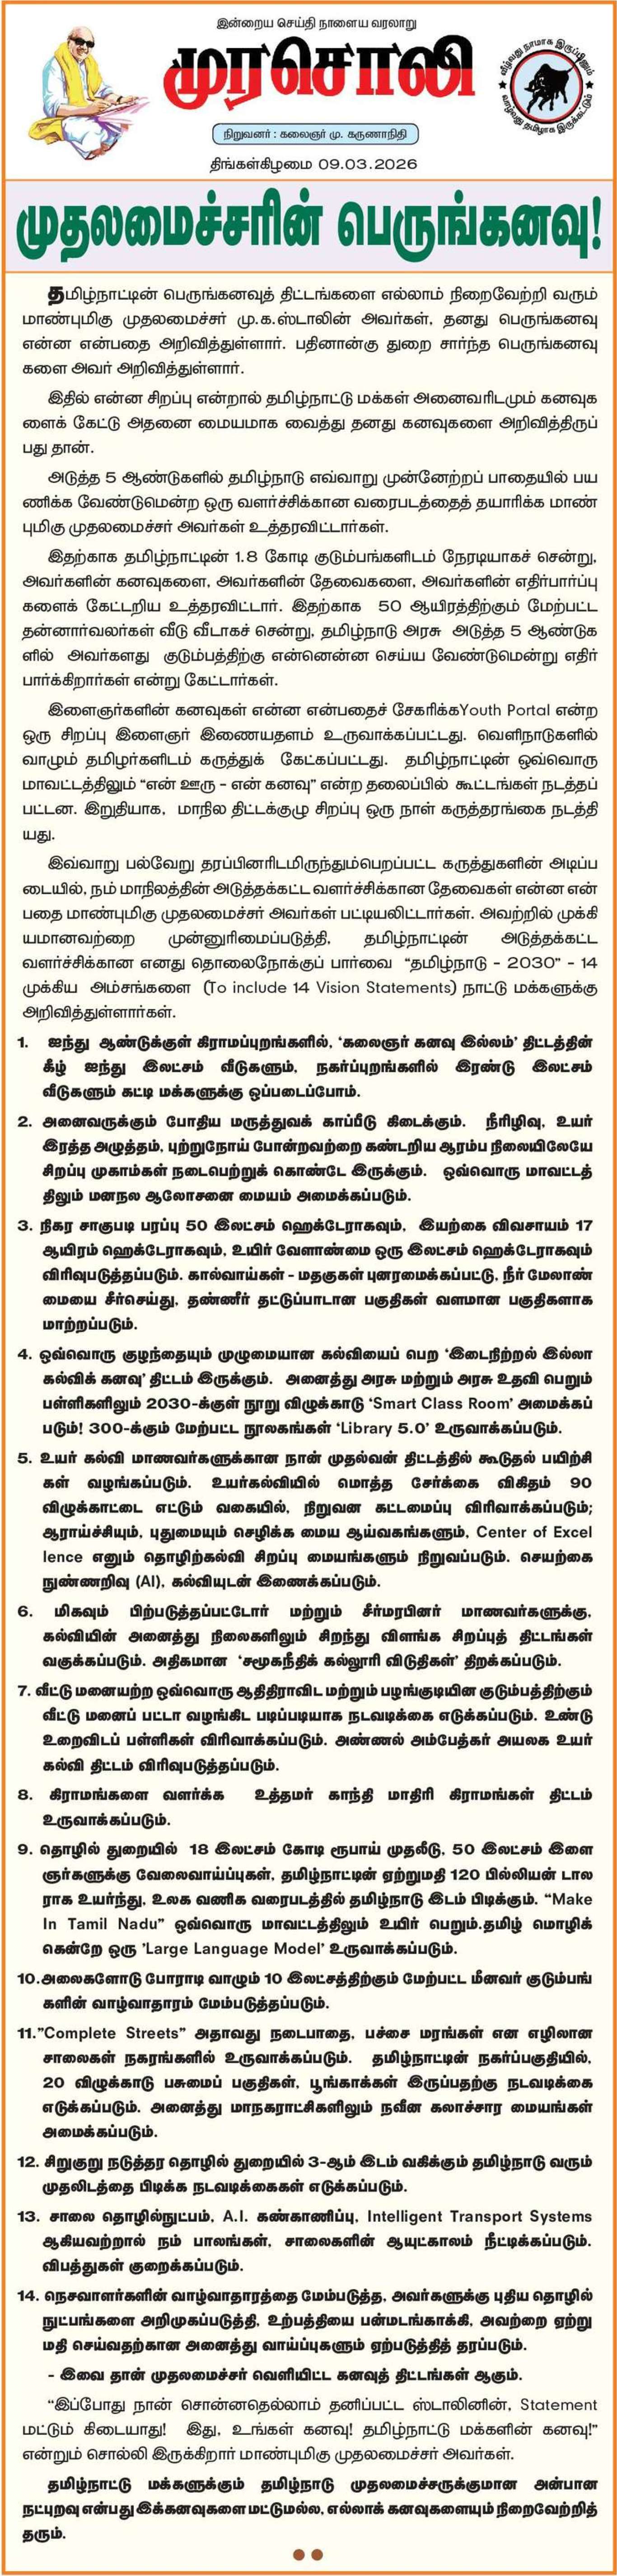 இன்றைய செய்தி நாளைய வரலாறு
முரசொலி
வீழ்வது நாமாக இருப்பினும்
வாழ்வது தமிழாக இருக்கட்டும்
நிறுவனர் : கலைஞர் மு. கருணாநிதி
திங்கள்கிழமை 09.03.2026
முதலமைச்சரின் பெருங்கனவு!
தமிழ்நாட்டின் பெருங்கனவுத் திட்டங்களை எல்லாம் நிறைவேற்றி வரும்
மாண்புமிகு முதலமைச்சர் மு.க.ஸ்டாலின் அவர்கள், தனது பெருங்கனவு
என்ன என்பதை அறிவித்துள்ளார். பதினான்கு துறை சார்ந்த பெருங்கனவு
களை அவர் அறிவித்துள்ளார்.
இதில் என்ன சிறப்பு என்றால் தமிழ்நாட்டு மக்கள் அனைவரிடமும் கனவுக
ளைக் கேட்டு அதனை மையமாக வைத்து தனது கனவுகளை அறிவித்திருப்
பது தான்.
அடுத்த 5 ஆண்டுகளில் தமிழ்நாடு எவ்வாறு முன்னேற்றப் பாதையில் பய
ணிக்க வேண்டுமென்ற ஒரு வளர்ச்சிக்கான வரைபடத்தைத் தயாரிக்க மாண்
புமிகு முதலமைச்சர் அவர்கள் உத்தரவிட்டார்கள்.
இதற்காக தமிழ்நாட்டின் 1.8 கோடி குடும்பங்களிடம் நேரடியாகச் சென்று,
அவர்களின் கனவுகளை, அவர்களின் தேவைகளை, அவர்களின் எதிர்பார்ப்பு
களைக் கேட்டறிய உத்தரவிட்டார். இதற்காக 50 ஆயிரத்திற்கும் மேற்பட்ட
தன்னார்வலர்கள் வீடு வீடாகச் சென்று, தமிழ்நாடு அரசு அடுத்த 5 ஆண்டுக
ளில் அவர்களது குடும்பத்திற்கு என்னென்ன செய்ய வேண்டுமென்று எதிர்
பார்க்கிறார்கள் என்று கேட்டார்கள்.
இளைஞர்களின் கனவுகள் என்ன என்பதைச் சேகரிக்கYouth Portal என்ற
ஒரு சிறப்பு இளைஞர் இணையதளம் உருவாக்கப்பட்டது. வெளிநாடுகளில்
வாழும் தமிழர்களிடம் கருத்துக் கேட்கப்பட்டது. தமிழ்நாட்டின் ஒவ்வொரு
மாவட்டத்திலும் “என் ஊரு - என் கனவு” என்ற தலைப்பில் கூட்டங்கள் நடத்தப்
பட்டன. இறுதியாக, மாநில திட்டக்குழு சிறப்பு ஒரு நாள் கருத்தரங்கை நடத்தி
யது.
இவ்வாறு பல்வேறு தரப்பினரிடமிருந்தும்பெறப்பட்ட கருத்துகளின் அடிப்ப
டையில், நம் மாநிலத்தின் அடுத்தக்கட்ட வளர்ச்சிக்கான தேவைகள் என்ன என்
பதை மாண்புமிகு முதலமைச்சர் அவர்கள் பட்டியலிட்டார்கள். அவற்றில் முக்கி
யமானவற்றை முன்னுரிமைப்படுத்தி, தமிழ்நாட்டின் அடுத்தக்கட்ட
வளர்ச்சிக்கான எனது தொலைநோக்குப் பார்வை “தமிழ்நாடு - 2030” - 14
முக்கிய அம்சங்களை (To include 14 Vision Statements) நாட்டு மக்களுக்கு
அறிவித்துள்ளார்கள்.
1. ஐந்து ஆண்டுக்குள் கிராமப்புறங்களில், ‘கலைஞர் கனவு இல்லம்’ திட்டத்தின்
கீழ் ஐந்து இலட்சம் வீடுகளும், நகர்ப்புறங்களில் இரண்டு இலட்சம்
வீடுகளும் கட்டி மக்களுக்கு ஒப்படைப்போம்.
2. அனைவருக்கும் போதிய மருத்துவக் காப்பீடு கிடைக்கும். நீரிழிவு, உயர்
இரத்த அழுத்தம், புற்றுநோய் போன்றவற்றை கண்டறிய ஆரம்ப நிலையிலேயே
சிறப்பு முகாம்கள் நடைபெற்றுக் கொண்டே இருக்கும். ஒவ்வொரு மாவட்டத்
திலும் மனநல ஆலோசனை மையம் அமைக்கப்படும்.
3. நிகர சாகுபடி பரப்பு 50 இலட்சம் ஹெக்டேராகவும், இயற்கை விவசாயம் 17
ஆயிரம் ஹெக்டேராகவும், உயிர் வேளாண்மை ஒரு இலட்சம் ஹெக்டேராகவும்
விரிவுபடுத்தப்படும். கால்வாய்கள் - மதகுகள் புனரமைக்கப்பட்டு, நீர் மேலாண்
மையை சீர்செய்து, தண்ணீர் தட்டுப்பாடான பகுதிகள் வளமான பகுதிகளாக
மாற்றப்படும்.
4. ஒவ்வொரு குழந்தையும் முழுமையான கல்வியைப் பெற ‘இடைநிற்றல் இல்லா
கல்விக் கனவு’ திட்டம் இருக்கும். அனைத்து அரசு மற்றும் அரசு உதவி பெறும்
பள்ளிகளிலும் 2030-க்குள் நூறு விழுக்காடு ‘Smart Class Room’ அமைக்கப்
படும்! 300-க்கும் மேற்பட்ட நூலகங்கள் ‘Library 5.0’ உருவாக்கப்படும்.
5. உயர் கல்வி மாணவர்களுக்கான நான் முதல்வன் திட்டத்தில் கூடுதல் பயிற்சி
கள் வழங்கப்படும். உயர்கல்வியில் மொத்த சேர்க்கை விகிதம் 90
விழுக்காட்டை எட்டும் வகையில், நிறுவன கட்டமைப்பு விரிவாக்கப்படும்;
ஆராய்ச்சியும், புதுமையும் செழிக்க மைய ஆய்வகங்களும், Center of Excel
lence எனும் தொழிற்கல்வி சிறப்பு மையங்களும் நிறுவப்படும். செயற்கை
நுண்ணறிவு (AI), கல்வியுடன் இணைக்கப்படும்.
6. மிகவும் பிற்படுத்தப்பட்டோர் மற்றும் சீர்மரபினர் மாணவர்களுக்கு,
கல்வியின் அனைத்து நிலைகளிலும் சிறந்து விளங்க சிறப்புத் திட்டங்கள்
வகுக்கப்படும். அதிகமான ‘சமூகநீதிக் கல்லூரி விடுதிகள்’ திறக்கப்படும்.
7. வீட்டு மனையற்ற ஒவ்வொரு ஆதிதிராவிட மற்றும் பழங்குடியின குடும்பத்திற்கும்
வீட்டு மனைப் பட்டா வழங்கிட படிப்படியாக நடவடிக்கை எடுக்கப்படும். உண்டு
உறைவிடப் பள்ளிகள் விரிவாக்கப்படும். அண்ணல் அம்பேத்கர் அயலக உயர்
கல்வி திட்டம் விரிவுபடுத்தப்படும்.
8. கிராமங்களை வளர்க்க உத்தமர் காந்தி மாதிரி கிராமங்கள் திட்டம்
உருவாக்கப்படும்.
9. தொழில் துறையில் 18 இலட்சம் கோடி ரூபாய் முதலீடு, 50 இலட்சம் இளை
ஞர்களுக்கு வேலைவாய்ப்புகள், தமிழ்நாட்டின் ஏற்றுமதி 120 பில்லியன் டால
ராக உயர்ந்து, உலக வணிக வரைபடத்தில் தமிழ்நாடு இடம் பிடிக்கும். “Make
In Tamil Nadu” ஒவ்வொரு மாவட்டத்திலும் உயிர் பெறும்.தமிழ் மொழிக்
கென்றே ஒரு ’Large Language Model’ உருவாக்கப்படும்.
10.அலைகளோடு போராடி வாழும் 10 இலட்சத்திற்கும் மேற்பட்ட மீனவர் குடும்பங்
களின் வாழ்வாதாரம் மேம்படுத்தப்படும்.
11.”Complete Streets” அதாவது நடைபாதை, பச்சை மரங்கள் என எழிலான
சாலைகள் நகரங்களில் உருவாக்கப்படும். தமிழ்நாட்டின் நகர்ப்பகுதியில்,
20 விழுக்காடு பசுமைப் பகுதிகள், பூங்காக்கள் இருப்பதற்கு நடவடிக்கை
எடுக்கப்படும். அனைத்து மாநகராட்சிகளிலும் நவீன கலாச்சார மையங்கள்
அமைக்கப்படும்.
12. சிறுகுறு நடுத்தர தொழில் துறையில் 3-ஆம் இடம் வகிக்கும் தமிழ்நாடு வரும்
முதலிடத்தை பிடிக்க நடவடிக்கைகள் எடுக்கப்படும்.
13. சாலை தொழில்நுட்பம், A.I. கண்காணிப்பு, Intelligent Transport Systems
ஆகியவற்றால் நம் பாலங்கள், சாலைகளின் ஆயுட்காலம் நீட்டிக்கப்படும்.
விபத்துகள் குறைக்கப்படும்.
14. நெசவாளர்களின் வாழ்வாதாரத்தை மேம்படுத்த, அவர்களுக்கு புதிய தொழில்
நுட்பங்களை அறிமுகப்படுத்தி, உற்பத்தியை பன்மடங்காக்கி, அவற்றை ஏற்று
மதி செய்வதற்கான அனைத்து வாய்ப்புகளும் ஏற்படுத்தித் தரப்படும்.
- இவை தான் முதலமைச்சர் வெளியிட்ட கனவுத் திட்டங்கள் ஆகும்.
“இப்போது நான் சொன்னதெல்லாம் தனிப்பட்ட ஸ்டாலினின், Statement
மட்டும் கிடையாது! இது, உங்கள் கனவு! தமிழ்நாட்டு மக்களின் கனவு!”
என்றும் சொல்லி இருக்கிறார் மாண்புமிகு முதலமைச்சர் அவர்கள்.
தமிழ்நாட்டு மக்களுக்கும் தமிழ்நாடு முதலமைச்சருக்குமான அன்பான
நட்புறவு என்பது இக்கனவுகளை மட்டுமல்ல, எல்லாக் கனவுகளையும் நிறைவேற்றித்
தரும்.